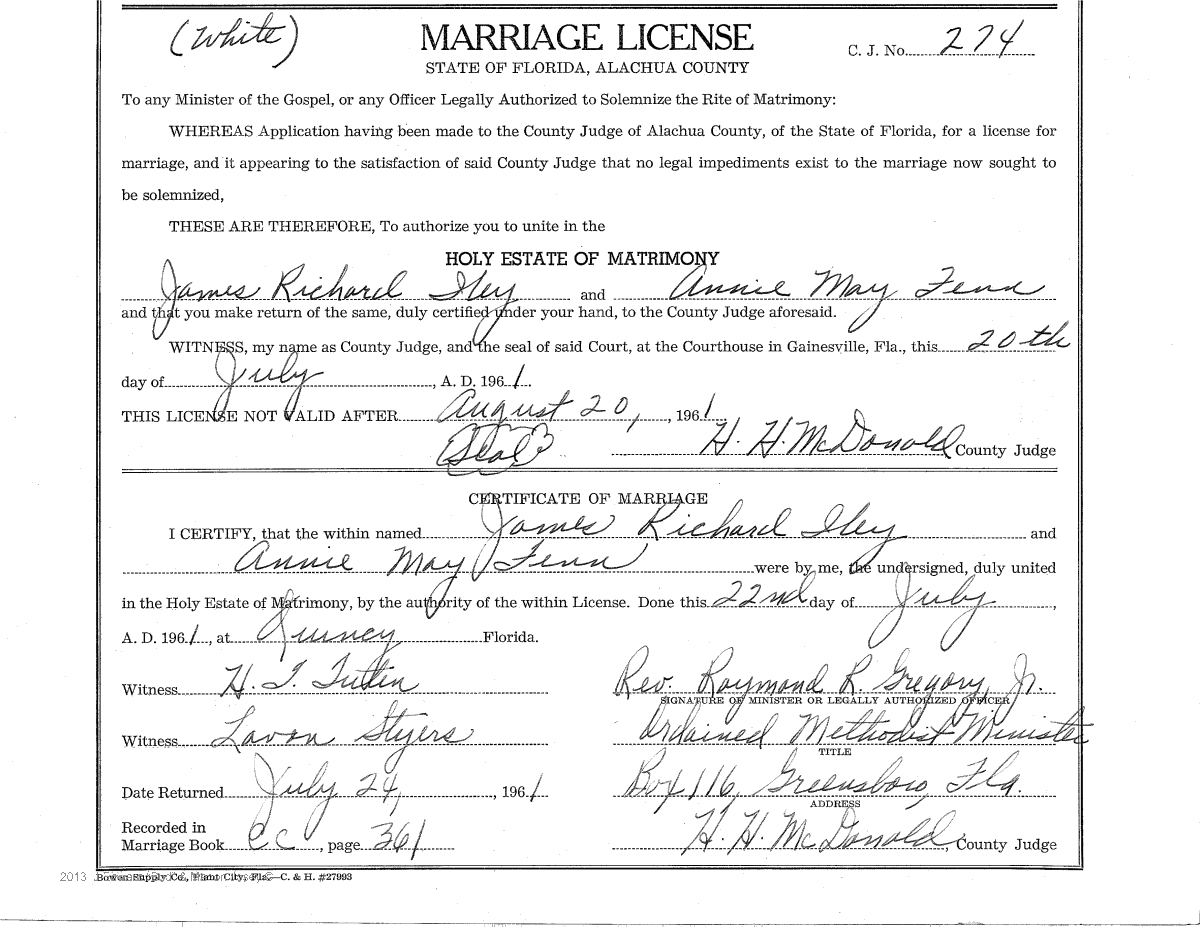 (White)
MARRIAGE LICENSE
C. J. No. 274
STATE OF FLORIDA, ALACHUA COUNTY
To any Minister of the Gospel, or any Officer Legally Authorized to Solemnize the Rite of Matrimony:
WHEREAS Application having been made to the County Judge of Alachua County, of the State of Florida, for a license for
marriage, and it appearing to the satisfaction of said County Judge that no legal impediments exist to the marriage now sought to
be solemnized,
THESE ARE THEREFORE, To authorize you to unite in the
HOLY ESTATE OF MATRIMONY
James Richard Iley and Annie May Fenn
and that you make return of the same, duly certified under your hand, to the County Judge aforesaid.
WITNESS, my name as County Judge, and the seal of said Court, at the Courthouse in Gainesville, Fla., this 20th
day of July, A. D. 1961.
THIS LICENSE NOT VALID AFTER August 20, , 1961
(Seal) H. H. McDonald County Judge
CERTIFICATE OF MARRIAGE
I CERTIFY, that the within named James Richard Iley and
Annie May Fenn were by me, the undersigned, duly united
in the Holy Estate of Matrimony, by the authority of the within License. Done this 22nd day of July,
A. D. 1961, at Quincy Florida.
Witness H. T. Tutin Rev. Raymond R. Gregory, Jr.
SIGNATURE OF MINISTER OR LEGALLY AUTHORIZED OFFICER
Witness Lavon Styers Ordained Methodist Minister
TITLE
Date Returned July 24, , 1961 Box 116, Greensboro, Fla.
ADDRESS
Recorded in
Marriage Book CC, page 361 H. H. McDonald, County Judge
2013 Bowen Supply Co., Plant City, Fla.—C. & H. #27993